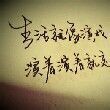 生活就像演戏
演着演着就变